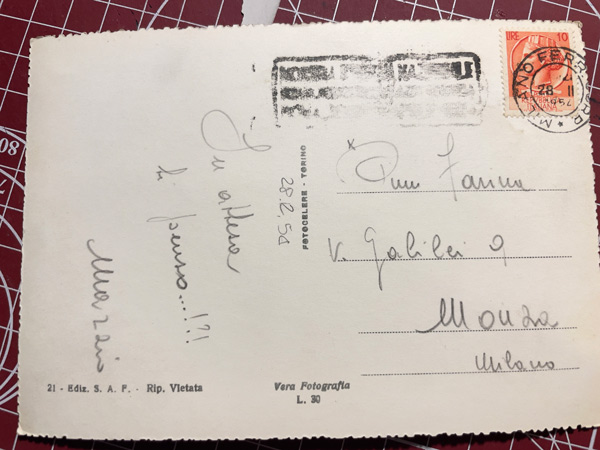 In attesa
ti penso...!?!
Marzio
28.2.54
FOTOCELERE - TORINO
LIRE 10
MILANO FERR
28 II
1954
Farina
V. Galilei 9
Monza
Milano
21 - Ediz. S. A. F. - Rip. Vietata
Vera Fotografia
L. 30
80